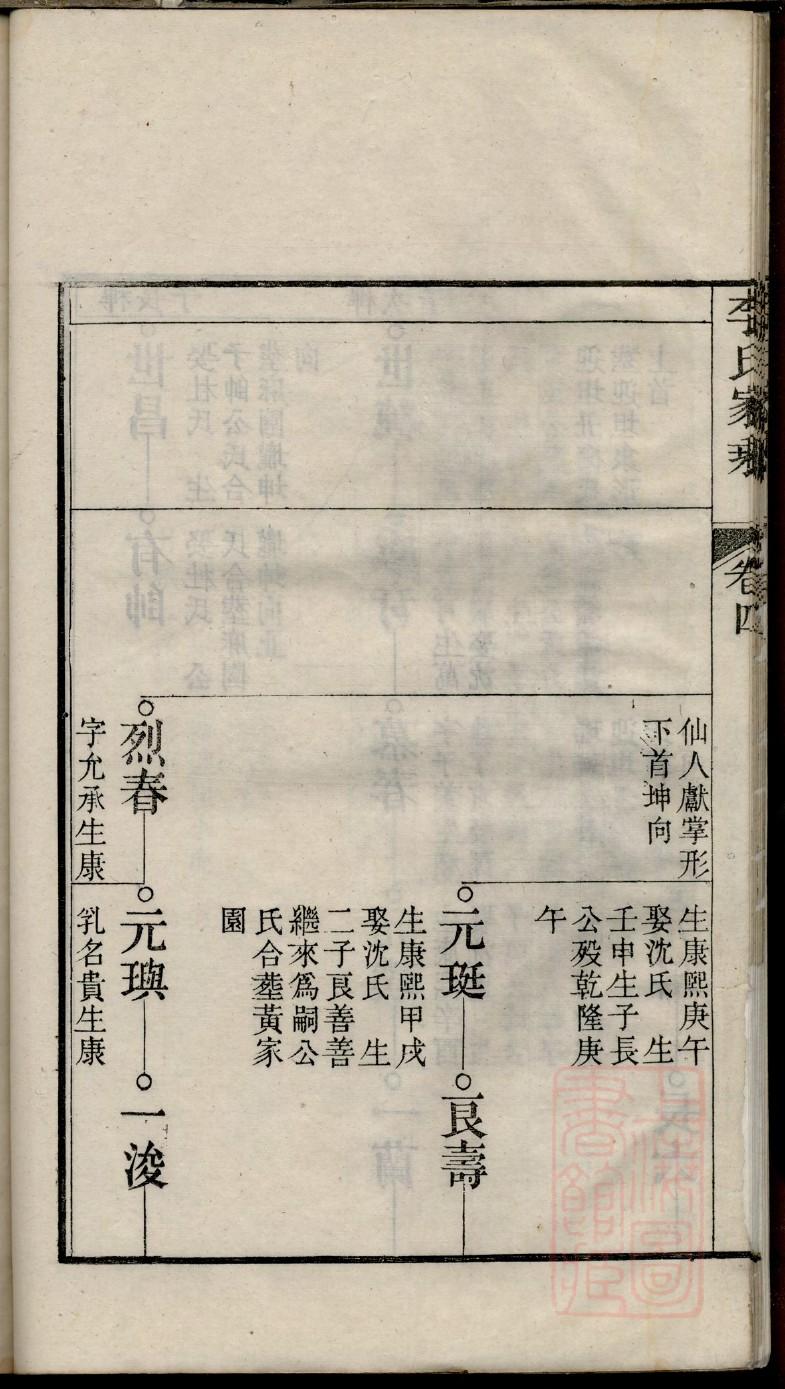 李氏家
卷四
仙人獻掌形
下首坤向
生康熙庚午
娶沈氏　生
壬申生子長
公殁乾隆庚
午
元珽
良壽
生康熙甲戌
娶沈氏　生
二子良善善
繼來為嗣公
氏合塟黃家
園
烈春
元璵
一浚
字允承生康
乳名貴生康
上海圖書館藏